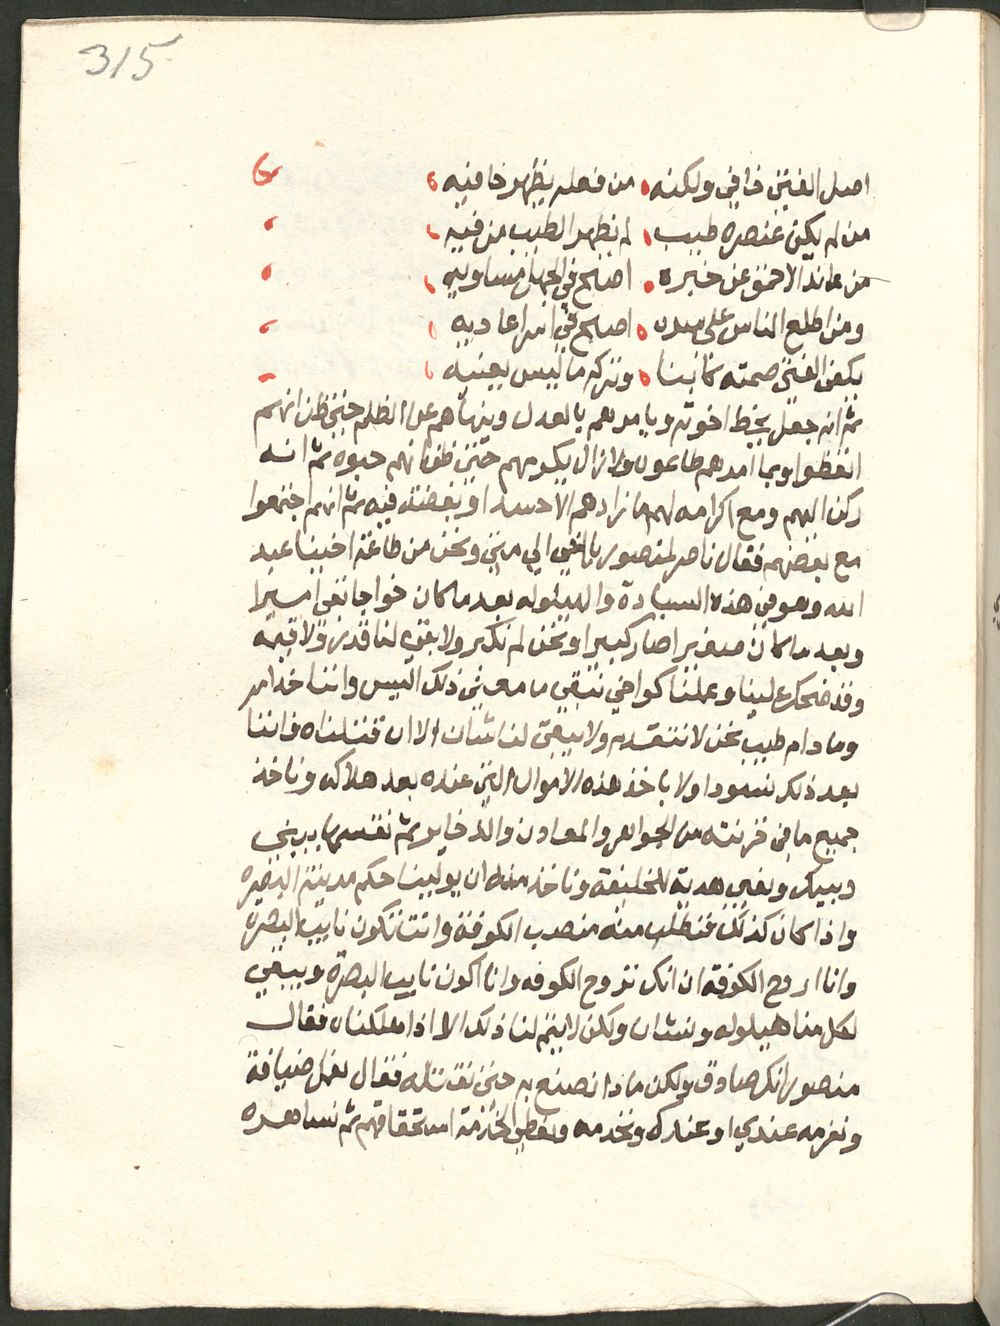 315
اصل الفتى خافي ولكنه من فعله يظهر خافيه
من لم يكن عنصره طيب لم يظهر الطيب من فيه
من عاند الاحمق عن خبره اصبح في الجهل مساويه
ومن اطلع الناس على سره اصبح في اسر اعاديه
يكفي الفتى صمته كاننا وتركه ما ليس يعنيه
ثم انه جعل يحط اخوته ويامرهم بالعدل وينهاهم عن الظلم حتى ظن انهم
اتعظوا وبما امرهم طاعون ولا زال يكرمهم حتى ظن انهم حبوه ثم انه
ركن اليهم ومع اكرامه لهم ما زادهم الا حسدا وبغضة فيه ثم انهم اجتمعوا
مع بعضهم فقال ناصر لمنصور يا اخي الي متى ونحن من طاعة اخينا عبد
الله وهو في هذه السيادة والهيلوله بعد ما كان خواجا بقي اميرا
وبعد ما كان صغيرا صار كبيرا ونحن لم نكبر ولا بقي لنا قدر ولا قيمه
وقد ضحك علينا وعملنا كواخي نبقي ما معنى ذلك اليس واننا خدامه
وما دام طيب نحن لا نتقدم ولا يبقى لنا شان الا ان قتلناه فاننا
بعد ذلك نسودا ولا ناخذ هذه الاموال التي عنده بعد هلاكه وناخذ
جميع ما في خزنته من الجواهر والمعادن والذخاير ثم نقسمها بيني
وبينك ونهي هدية للخليفة وناخذ منه ان يولينا حكم مدينة البصره
واذا كان كذلك فنطلب منه منصب الكوفة وانت تكون نايب البصره
وانا اروح الكوفة ان انك تروح الكوفه وانا اكون نايب البصرة ويبقي
لكل منا هيلوله وشان ولكن لا يتم لنا ذلك الا اذا هلكناه فقال
منصور انك صادق ولكن ماذا نصنع به حتى نقتله فقال نعمل ضيافة
ونعزمه عندي او عندك ونخدمه ونعطي الخدمة استحقاقهم ثم نساهره